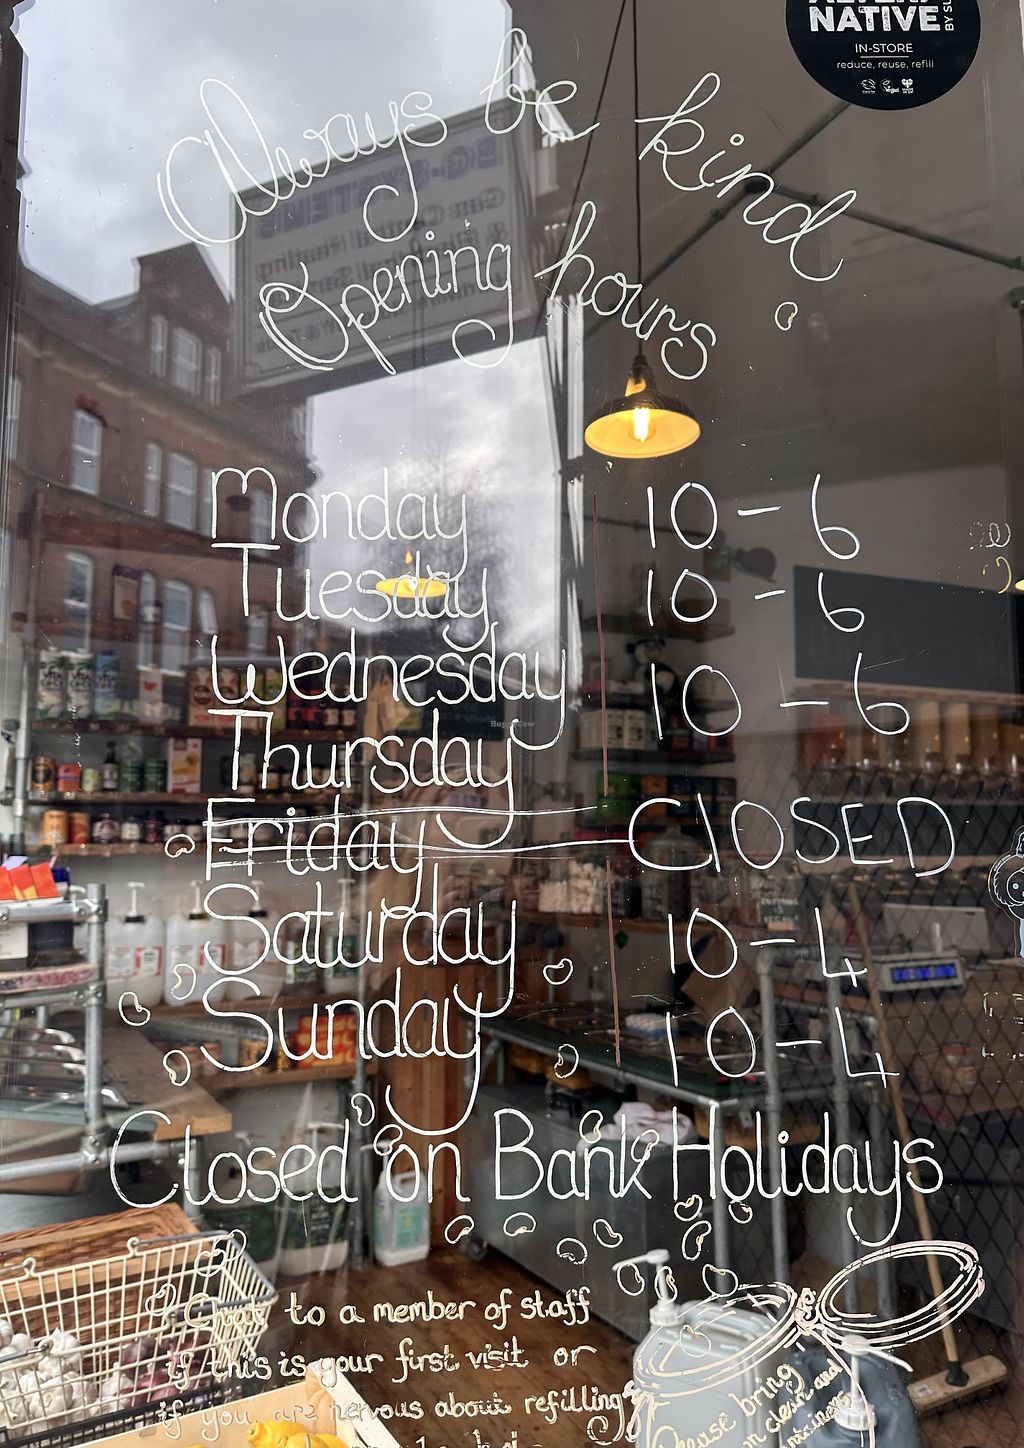 NATIVE
BY SU
IN-STORE
reduce, reuse, refill
Always be kind
Opening hours
Monday 10 - 6
Tuesday 10 - 6
Wednesday 10 - 6
Thursday
Friday CLOSED
Saturday 10 - 4
Sunday 10 - 4
Closed on Bank Holidays
Chat to a member of staff
if this is your first visit or
if you are nervous about refilling
Please bring
clean and
containers
HappyCow
VITA
VITA